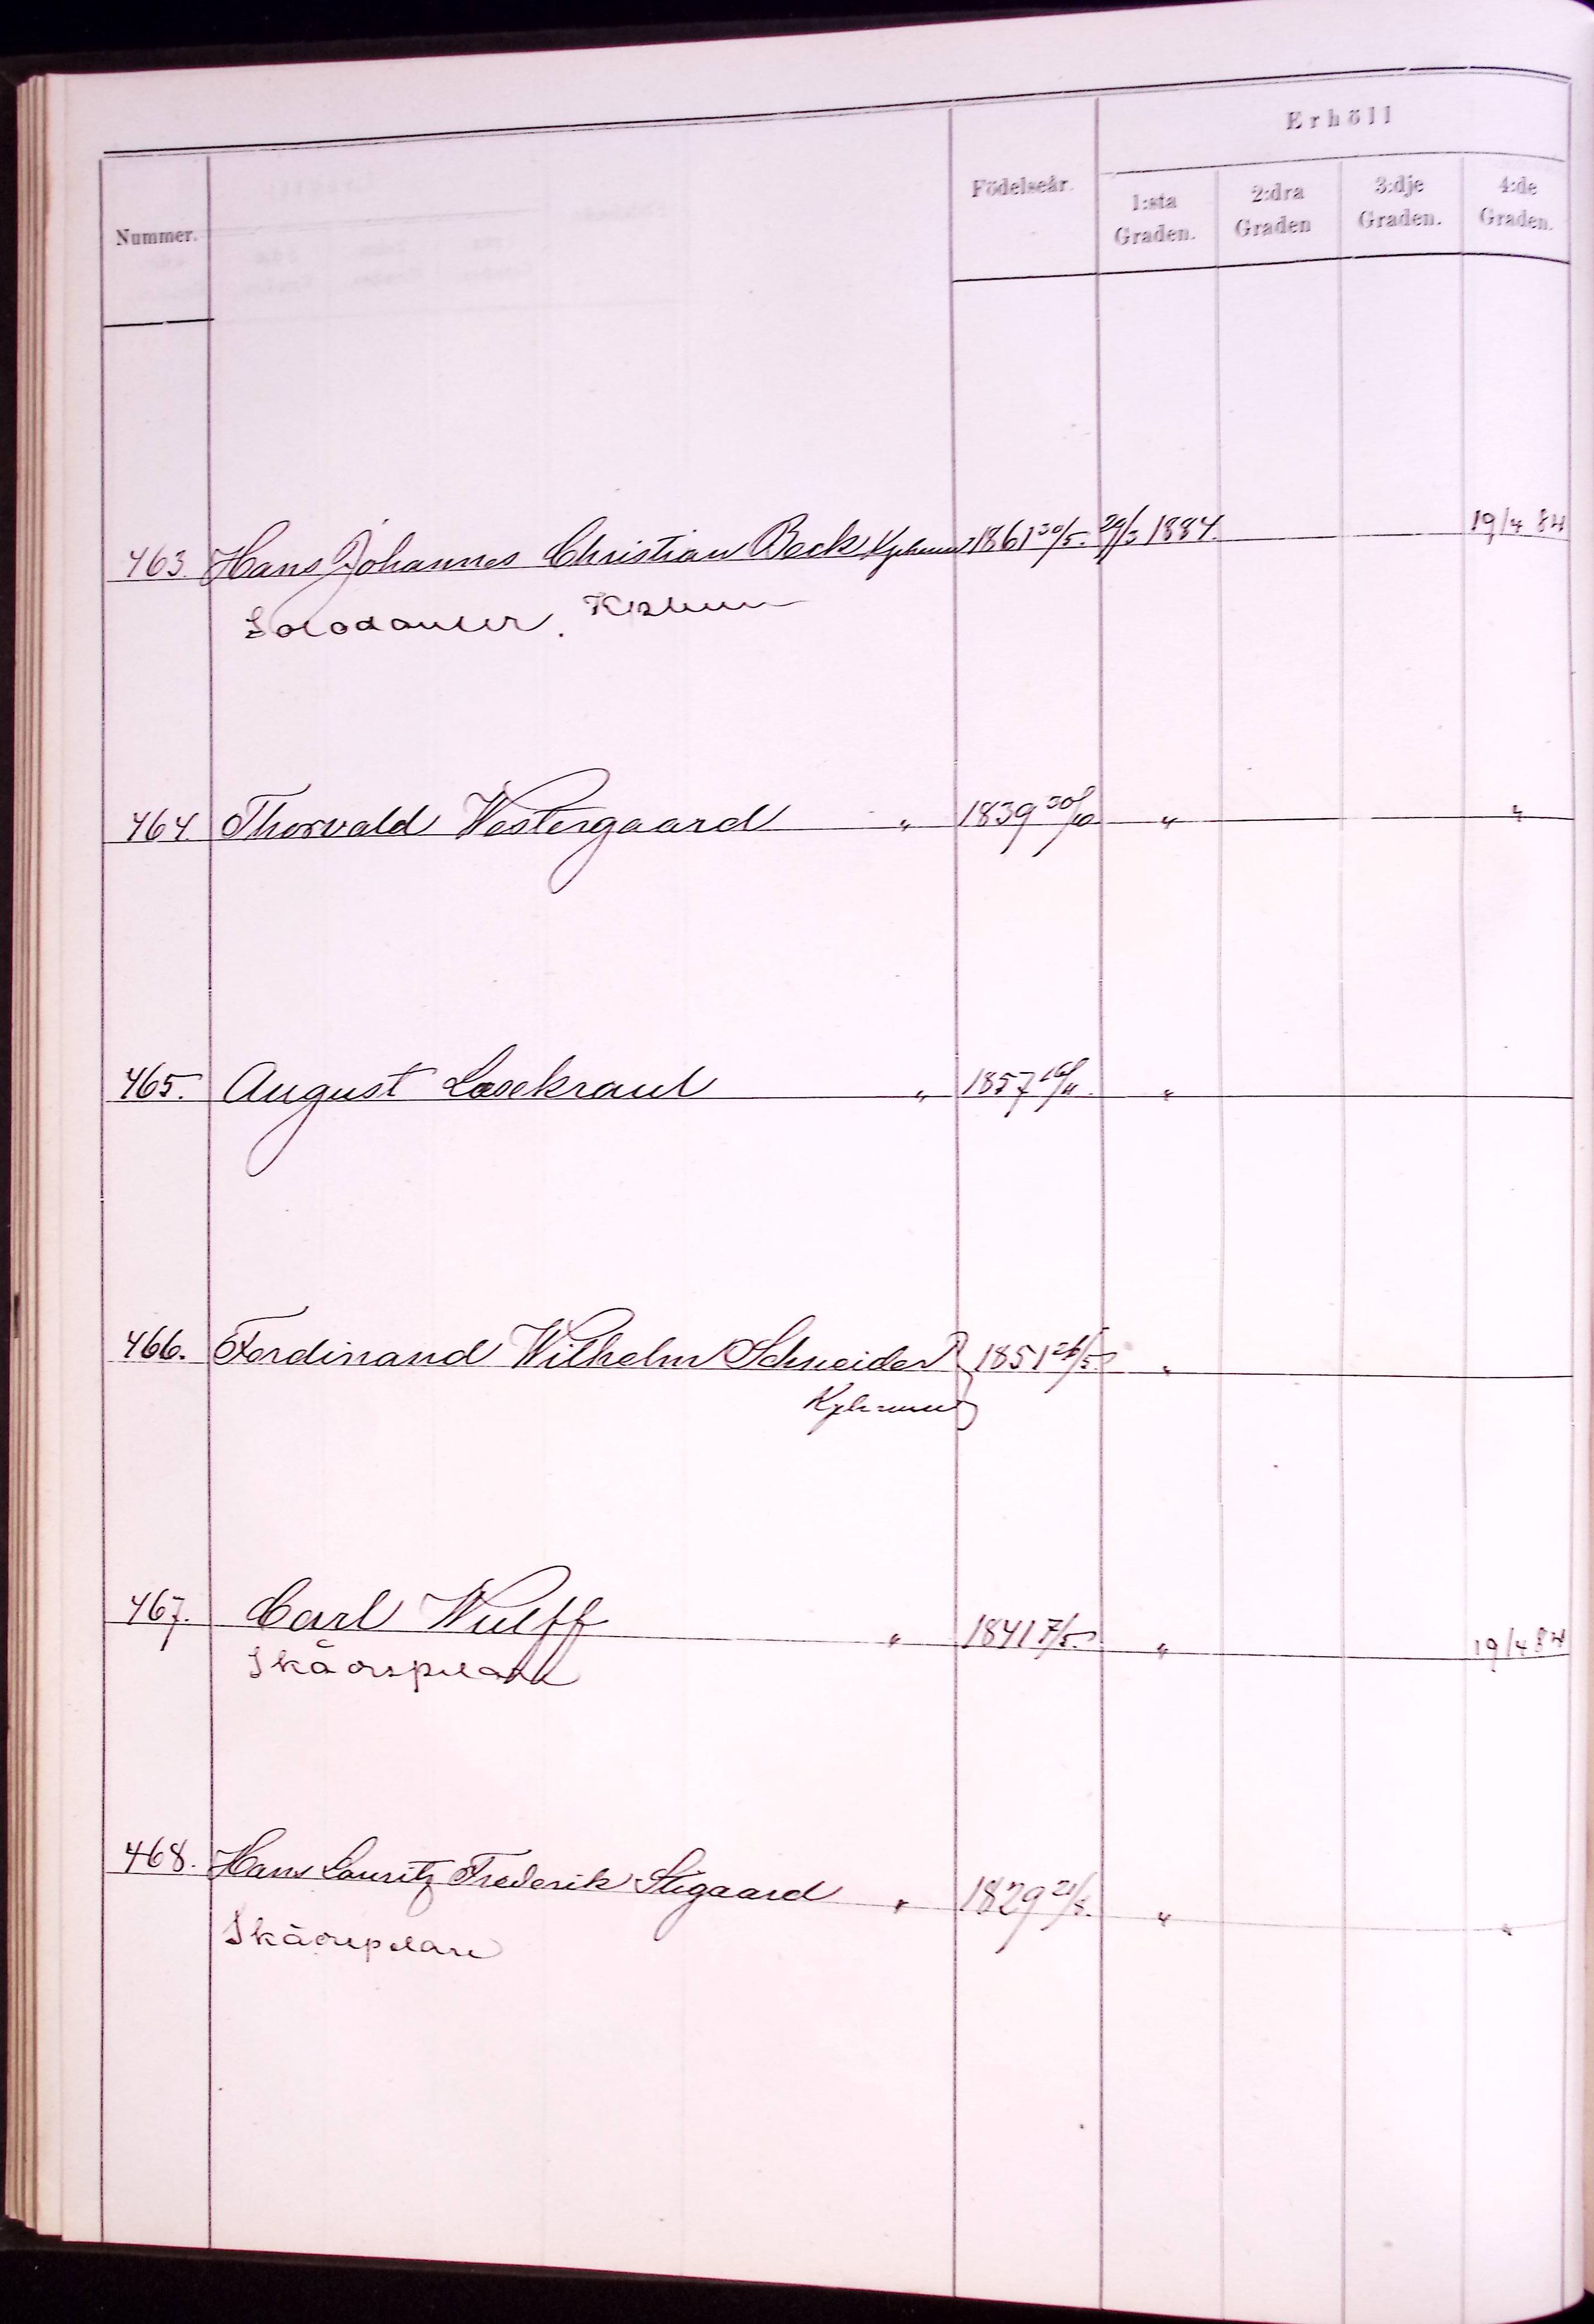 Erhöll
Nummer. Födelseår. 1:sta Graden. 2:dra Graden 3:dje Graden. 4:de Graden.
463. Hans Johannes Christian Beck Kjphmn 1861 30/5. 29/3 1884. 19/4 84
Solodanser. Kbhmn
464. Thorvald Westergaard " 1839 30/10 " "
465. August Lasekraul " 1857 16/11. "
466. Ferdinand Wilhelm Schneider 1851 26/5. "
Kjphmn
467. Carl Wulff " 1841 7/5. " 19/4 84
Skådespelare
468. Hans Lauritz Frederik Stigaard " 1829 21/8. " "
Skådespelare